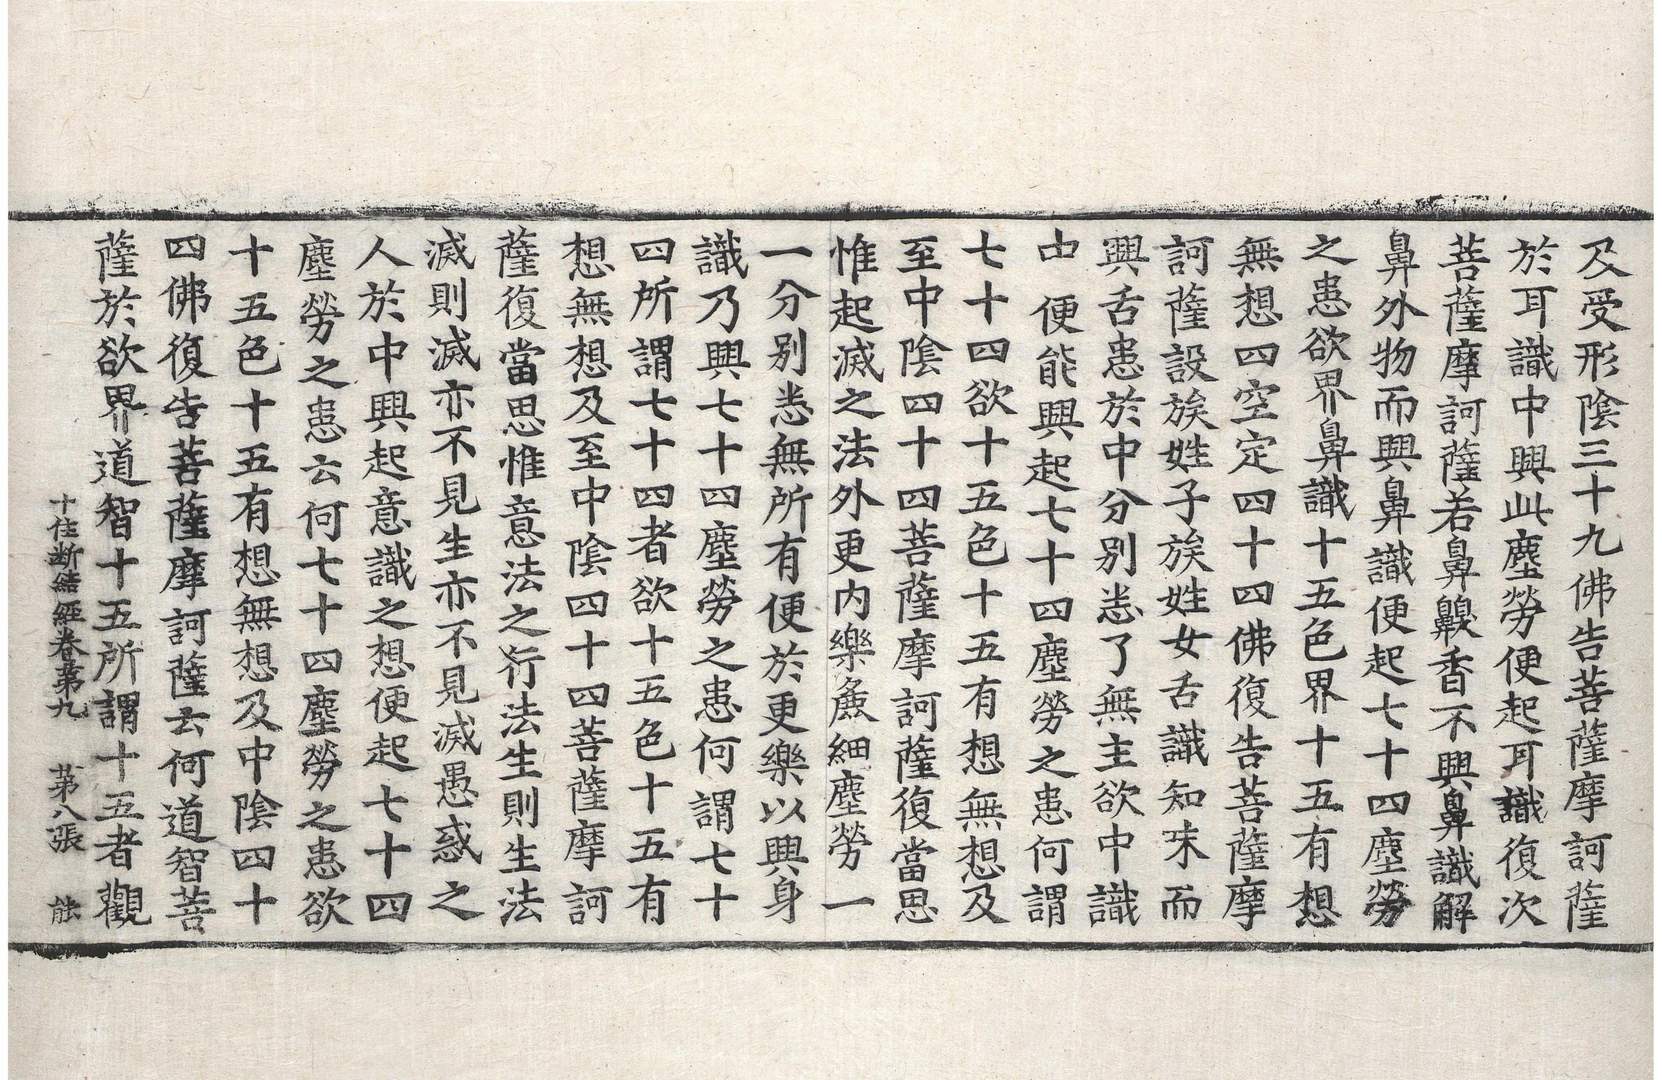 及受形陰三十九佛告菩薩摩訶薩
於耳識中興此塵勞便起耳識復次
菩薩摩訶薩若鼻鼻齅香不興鼻識解
鼻外物而興鼻識便起七十四塵勞
之患欲界鼻識十五色界十五有想
無想四空定四十四佛復告菩薩摩
訶薩設族姓子族姓女舌識知味而
興舌患於中分別悉了無主欲中識
中便能興起七十四塵勞之患何謂
七十四欲十五色十五有想無想及
至中陰四十四菩薩摩訶薩復當思
惟起滅之法外更內樂麁細塵勞一
一分別悉無所有便於更樂以興身
識乃興七十四塵勞之患何謂七十
四所謂七十四者欲十五色十五有
想無想及至中陰四十四菩薩摩訶
薩復當思惟意法之行法生則生法
滅則滅亦不見生亦不見滅愚惑之
人於中興起意識之想便起七十四
塵勞之患云何七十四塵勞之患欲
十五色十五有想無想及中陰四十
四佛復告菩薩摩訶薩云何道智菩
薩於欲界道智十五所謂十五者觀
十住断結經卷第九 第八張 能